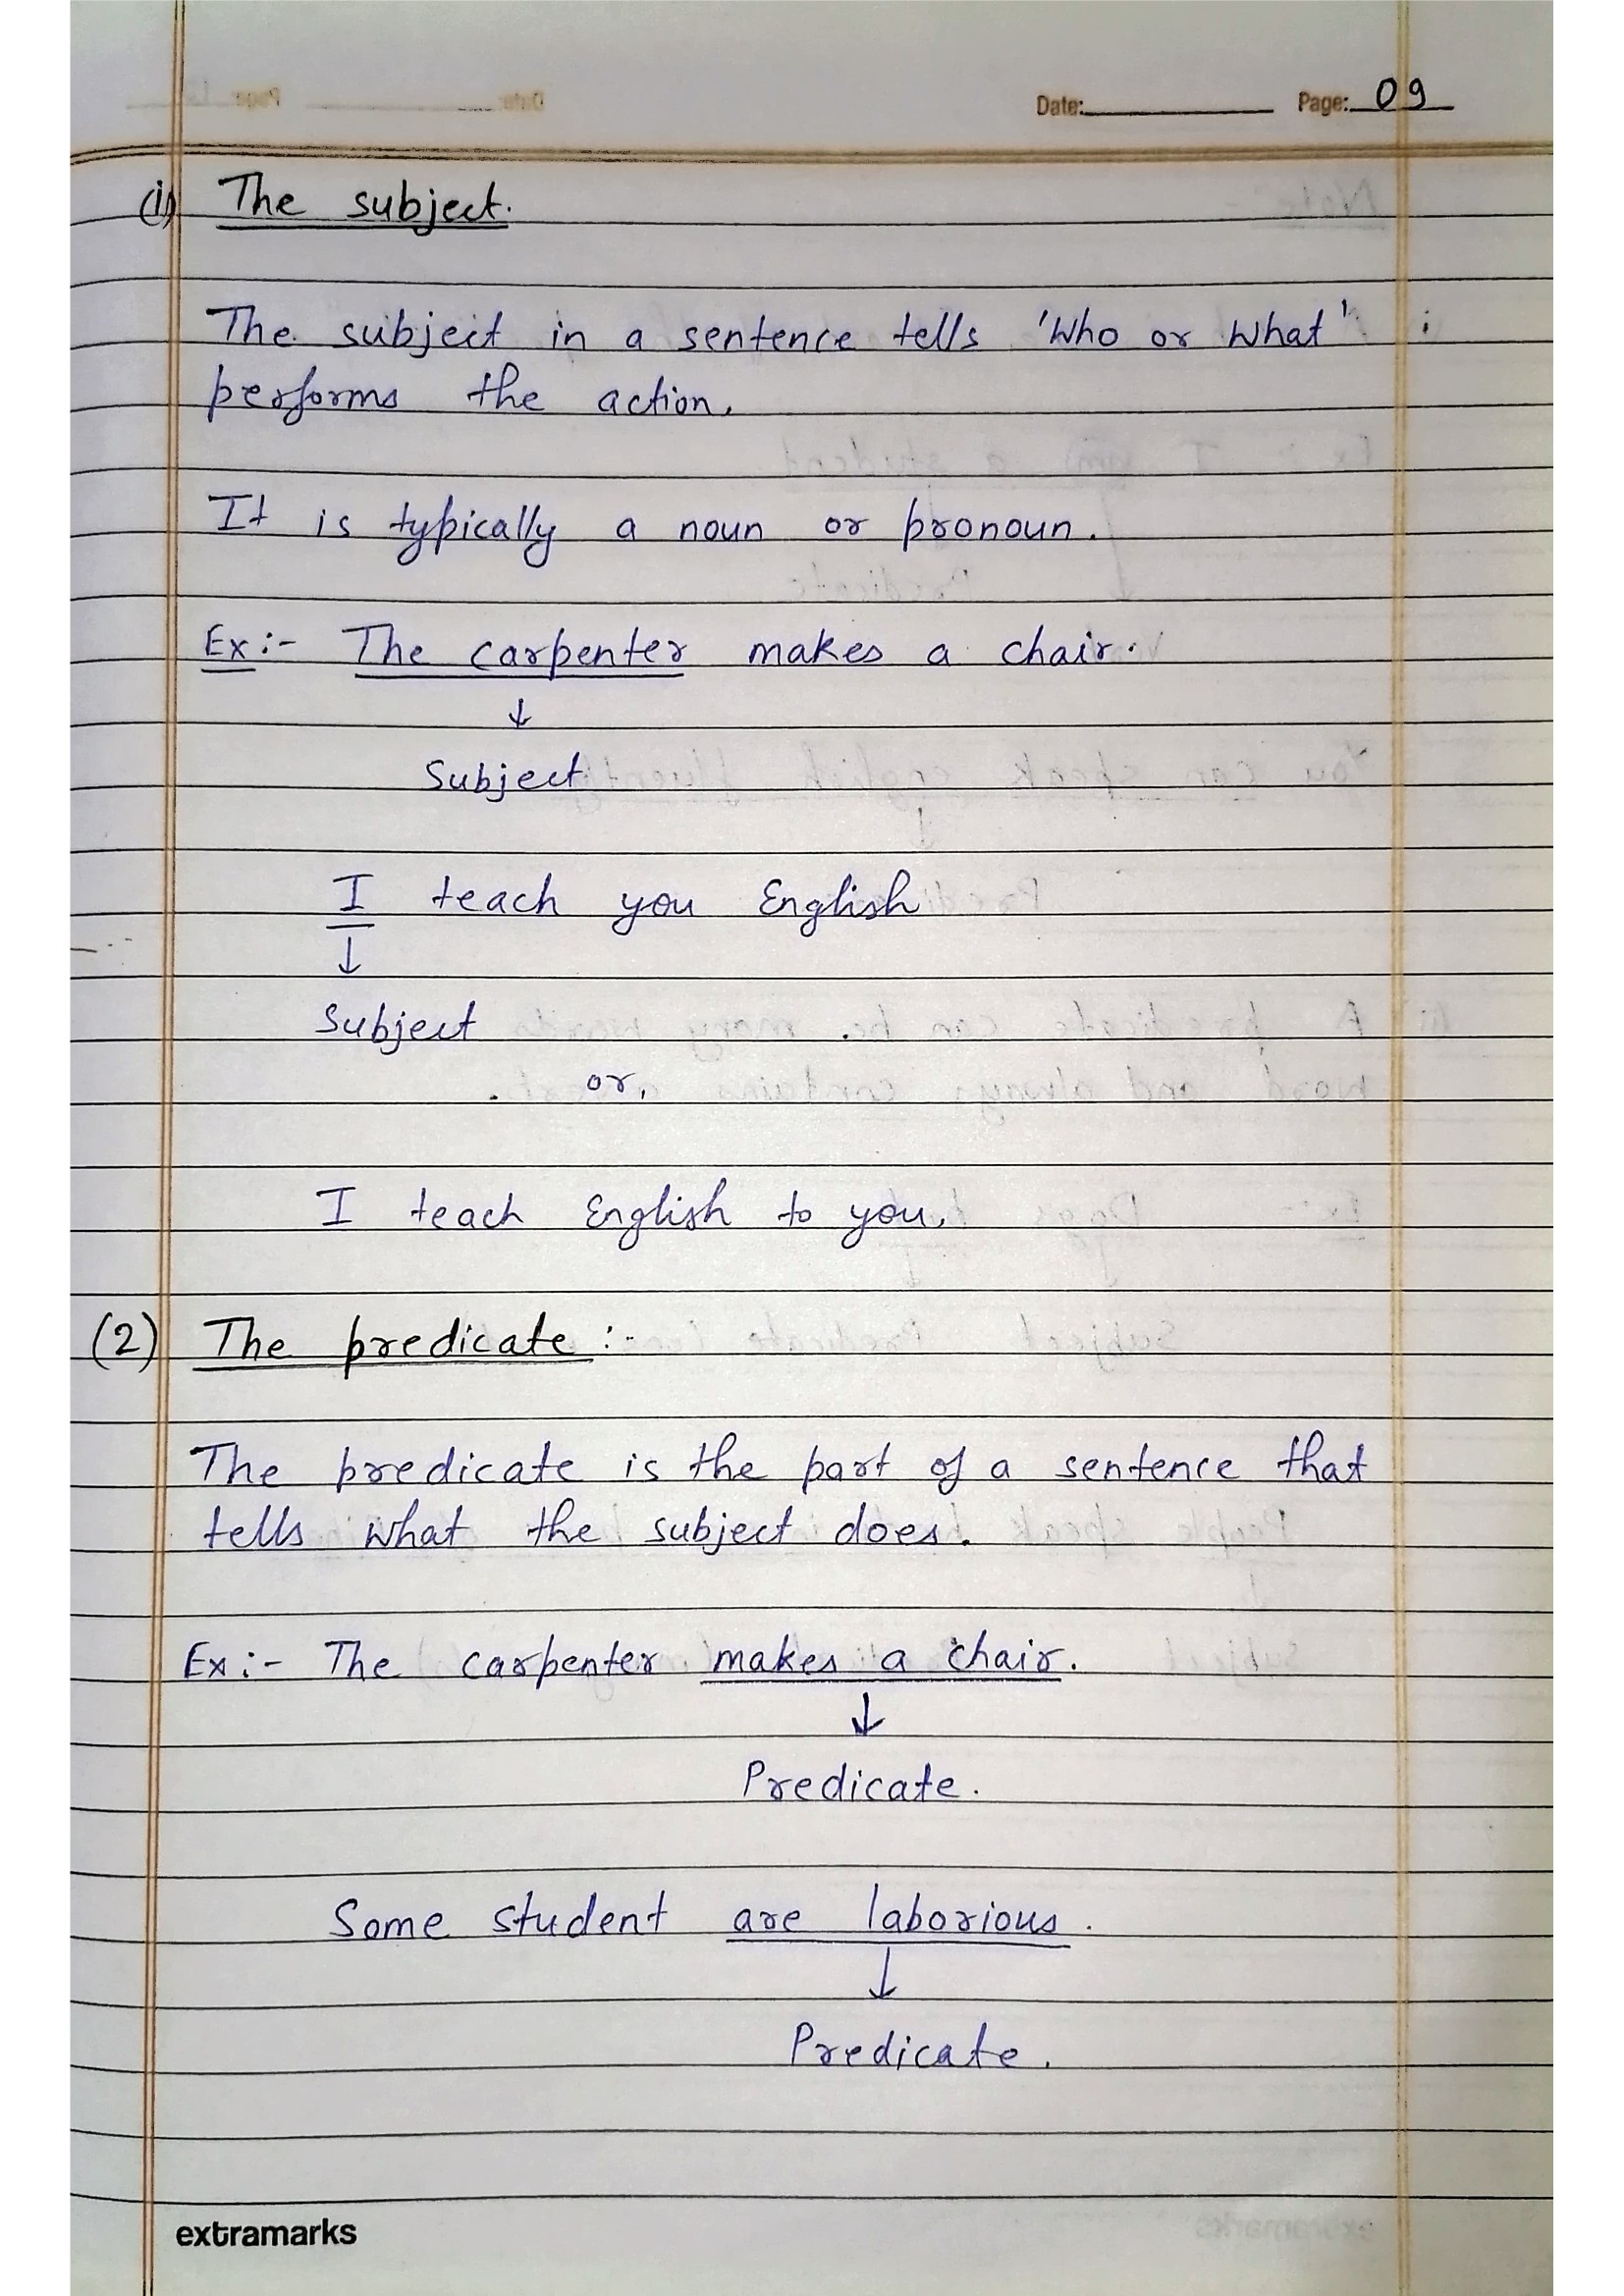 Date: Page: 09
(i) The subject.
The subject in a sentence tells 'Who or What'
performs the action.
It is typically a noun or pronoun.
Ex:- The carpenter makes a chair.
↓
Subject
I teach you English
↓
Subject
or,
I teach English to you.
(2) The predicate :-
The predicate is the part of a sentence that
tells what the subject does.
Ex:- The carpenter makes a chair.
↓
Predicate.
Some student are laborious.
↓
Predicate.
extramarks